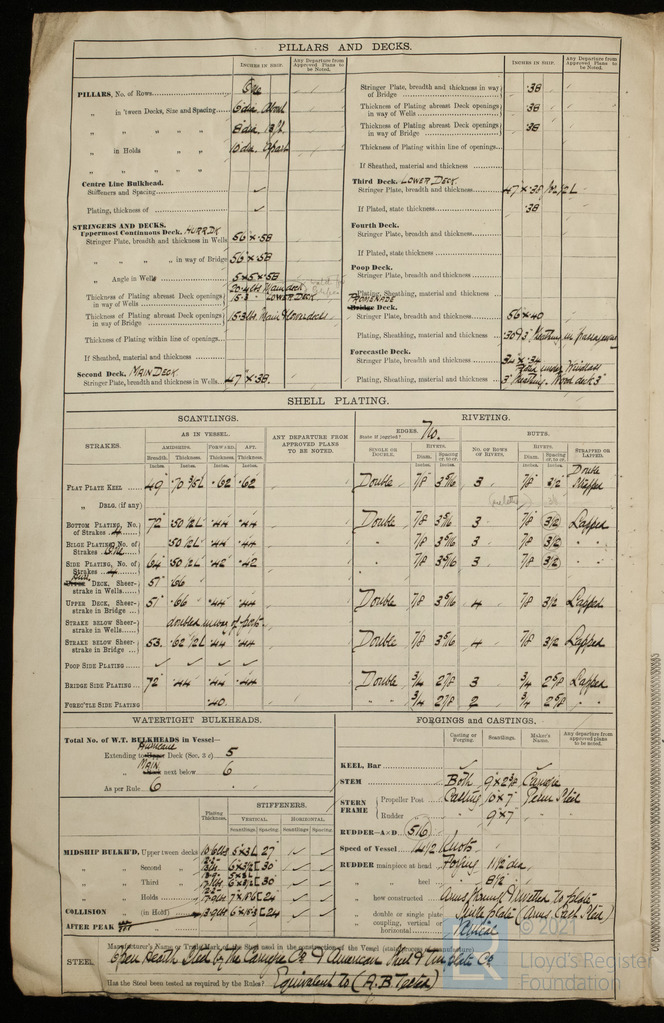 PILLARS AND DECKS.
INCHES IN SHIP.
Any Departure from Approved Plans to be Noted.
PILLARS, No. of Rows One
„ in 'tween Decks, Size and Spacing 6 dia. About
„ „ „ „ 8 dia. 13 ft.
„ in Holds „ „ 10 dia. Apart
„ „ „ „
Centre Line Bulkhead.
Stiffeners and Spacing ✓
Plating, thickness of ✓
STRINGERS AND DECKS.
Uppermost Continuous Deck. HURR DK
Stringer Plate, breadth and thickness in Wells 56" × .58
„ „ „ in way of Bridge 56" × .58
„ Angle in Wells 5 × 5 × .58
Thickness of Plating abreast Deck openings in way of Wells 20.4 lbs Main deck 15.3 - LOWER DECK
Thickness of Plating abreast Deck openings in way of Bridge 15.3 lbs. Main & lower decks
Thickness of Plating within line of openings
If Sheathed, material and thickness
Second Deck. MAIN DECK
Stringer Plate, breadth and thickness in Wells 47" × .38.
INCHES IN SHIP.
Any Departure from Approved Plans to be Noted.
Stringer Plate, breadth and thickness in way of Bridge .38
Thickness of Plating abreast Deck openings in way of Wells .38
Thickness of Plating abreast Deck openings in way of Bridge .38
Thickness of Plating within line of openings
If Sheathed, material and thickness
Third Deck. LOWER DECK
Stringer Plate, breadth and thickness 47" × .38
If Plated, state thickness .38
Fourth Deck.
Stringer Plate, breadth and thickness
If Plated, state thickness
Poop Deck.
Stringer Plate, breadth and thickness
Plating, Sheathing, material and thickness
PROMENADE
Bridge Deck.
Stringer Plate, breadth and thickness 56 × 40
Plating, Sheathing, material and thickness .30 & 3" Sheathing in passageways
Forecastle Deck.
Stringer Plate, breadth and thickness 34 × .34
Plating, Sheathing, material and thickness Plated under Windlass 3" Sheathing. Wood deck 3"
SHELL PLATING.
SCANTLINGS.
RIVETING.
STRAKES.
AS IN VESSEL.
AMIDSHIPS. FORWARD. AFT.
Breadth. Thickness. Thickness. Thickness.
Inches. Inches. Inches. Inches.
ANY DEPARTURE FROM APPROVED PLANS TO BE NOTED.
EDGES.
State if joggled? No.
SINGLE OR DOUBLE.
RIVETS.
Diam. Spacing cr. to cr.
Inches. Inches.
BUTTS.
NO. OF ROWS OF RIVETS.
RIVETS.
Diam. Spacing cr. to cr.
Inches. Inches.
STRAPPED OR LAPPED.
FLAT PLATE KEEL 49 .70 .62 .62 Double 7/8 3 5/16 3 7/8 3 1/2 Double Strapped
„ DBLG. (if any)
BOTTOM PLATING, No. of Strakes 4 72" .50 .44 .44 Double 7/8 3 5/16 3 7/8 3 1/2 Lapped
BILGE PLATING, No. of Strakes One .50 .44 .44 " 7/8 3 5/16 3 7/8 3 1/2 " "
SIDE PLATING, No. of Strakes 4 64 .50 .42 .42 " 7/8 3 5/16 3 7/8 3 1/2 " "
UPPER DECK, Sheerstrake in Wells 57 .66
UPPER DECK, Sheerstrake in Bridge 57 .66 .44 .44 Double 7/8 3 5/16 4 7/8 3 1/2 Lapped
STRAKE BELOW SHEERstrake in Wells doubled in way of ports
STRAKE BELOW SHEERstrake in Bridge 53. .62 .44 .44 Double 7/8 3 5/16 4 7/8 3 1/2 Lapped
POOP SIDE PLATING ✓ ✓ ✓ ✓
BRIDGE SIDE PLATING 72" .44 .44 .44 Double 3/4 2 7/8 3 3/4 2 5/8 Lapped
FOREC'TLE SIDE PLATING .40. " " 3/4 2 7/8 2 3/4 2 5/8 " "
WATERTIGHT BULKHEADS.
Total No. of W.T. BULKHEADS in Vessel—
Extending to Hurricane Deck (Sec. 3 c) 5
„ MAIN Deck next below 6
As per Rule 6
Plating Thickness.
STIFFENERS.
VERTICAL HORIZONTAL
Scantlings Spacing Scantlings Spacing
MIDSHIP BULKH'D, Upper 'tween decks
„ Second „
„ Third „
„ Holds
COLLISION „ (in Hold)
AFTER PEAK „
FORGINGS and CASTINGS.
Casting or Forging. Scantlings. Maker's Name. Any departure from approved plans to be noted.
KEEL, Bar ✓
STEM Both
STERN FRAME Propeller Post Casting 10 × 7" Penn Steel
Rudder „ 9" × 7"
RUDDER—A×D 516
Speed of Vessel 14 1/2 Knots
RUDDER mainpiece at head Forging 11 1/2 dia.
„ „ heel 8 1/2 "
„ how constructed
„ double or single plate Single plate (Arms Cast Steel)
„ coupling, vertical or horizontal Vertical
STEEL
Manufacturer's Name or Trade Mark of the Steel used in the construction of the Vessel
Open Hearth Steel by the Carnegie Co & American Steel & Tinplate Co
Has the Steel been tested as required by the Rules? Equivalent to (A.B Tested)
© 2021
Lloyd's Register
Foundation